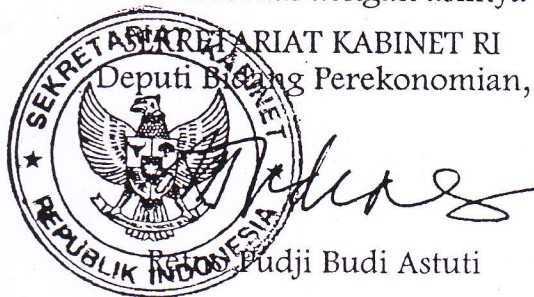 SEKRETARIAT KABINET RI
Deputi Bidang Perekonomian,
SEKRETARIAT KABINET
REPUBLIK INDONESIA
Pudji Budi Astuti